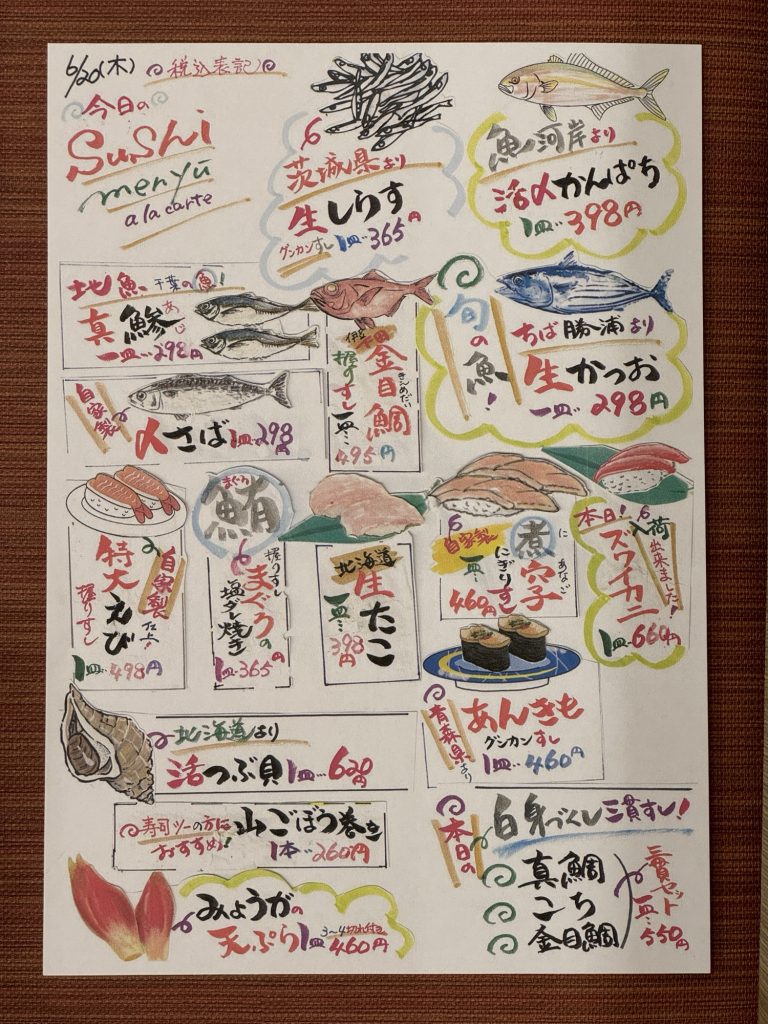 6/20(木) 税込表記
今日の
Sushi
menyū
a la carte
茨城県より
生しらす
グンカンすし 1皿…365円
魚河岸より
活〆かんぱち
1皿…398円
地魚 千葉の魚!
真鯵 あじ
一皿…298円
自家製
〆さば 1皿…298円
金目鯛 きんめだい
握りすし 一皿…
495円
旬の魚!
ちば勝浦より
生かつお
一皿…298円
特大えび
自家製仕上!
握りすし
1皿…498円
まぐろ
鮪
握りすし
まぐろの
塩ダレ焼き
1皿…365円
北海道
生たこ
一皿…398円
自家製
煮穴子 にあなご
にぎりすし
一皿…460円
本日!
入荷出来ました!
ズワイカニ
1皿…660円
青森県より
あんきも
グンカンすし
1皿…460円
北海道より
活つぶ貝 1皿…620円
寿司ツーの方に
おすすめ!
山ごぼう巻き
1本…260円
みょうがの
天ぷら 3〜4切れ付 1皿…460円
本日の
白身づくし三貫すし!
真鯛
こち
金目鯛
三貫セット
一皿…550円